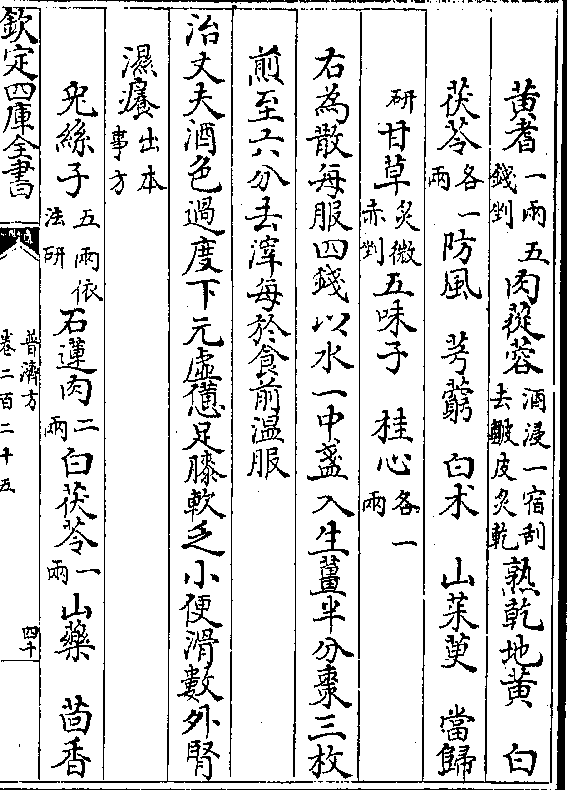 黄耆一兩五錢剉肉蓯蓉酒浸一宿刮去皺皮炙乾熟乾地黄 白
茯苓各一兩防風 芎藭 白术 山茱萸 當歸
研甘草炙微赤剉五味子 桂心各一兩
右為散每服四錢以水一中盞入生薑半分棗三枚
煎至六分去滓每於食前温服
治丈夫酒色過度下元虚憊足膝軟乏小便滑數外腎
濕癢出本事方
兔絲子五兩依法研石蓮肉二兩白茯苓一兩山藥 茴香
欽定四庫全書
普濟方
卷二百二十五
四十